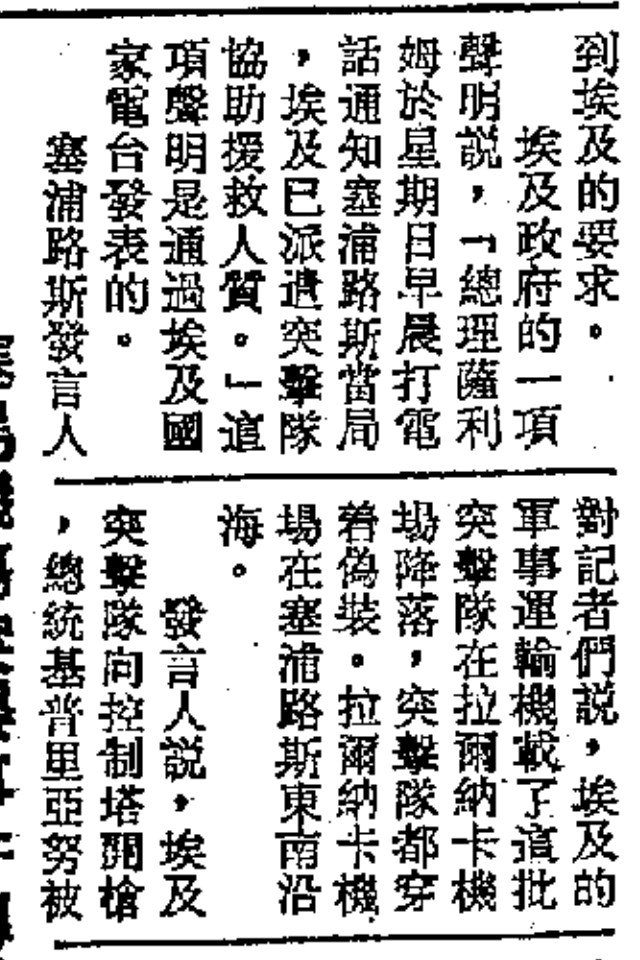 到埃及的要求。
埃及政府的一項
聲明説，「總理薩利
姆於星期日早晨打電
話通知塞浦路斯當局
，埃及已派遣突擊隊
協助援救人質。」這
項聲明是通過埃及國
家電台發表的。
塞浦路斯發言人
對記者們説，埃及的
軍事運輸機載了這批
突擊隊在拉爾納卡機
場降落，突擊隊都穿
着偽裝。拉爾納卡機
場在塞浦路斯東南沿
海。
發言人説，埃及
突擊隊向控制塔開槍
，總統基普里亞努被